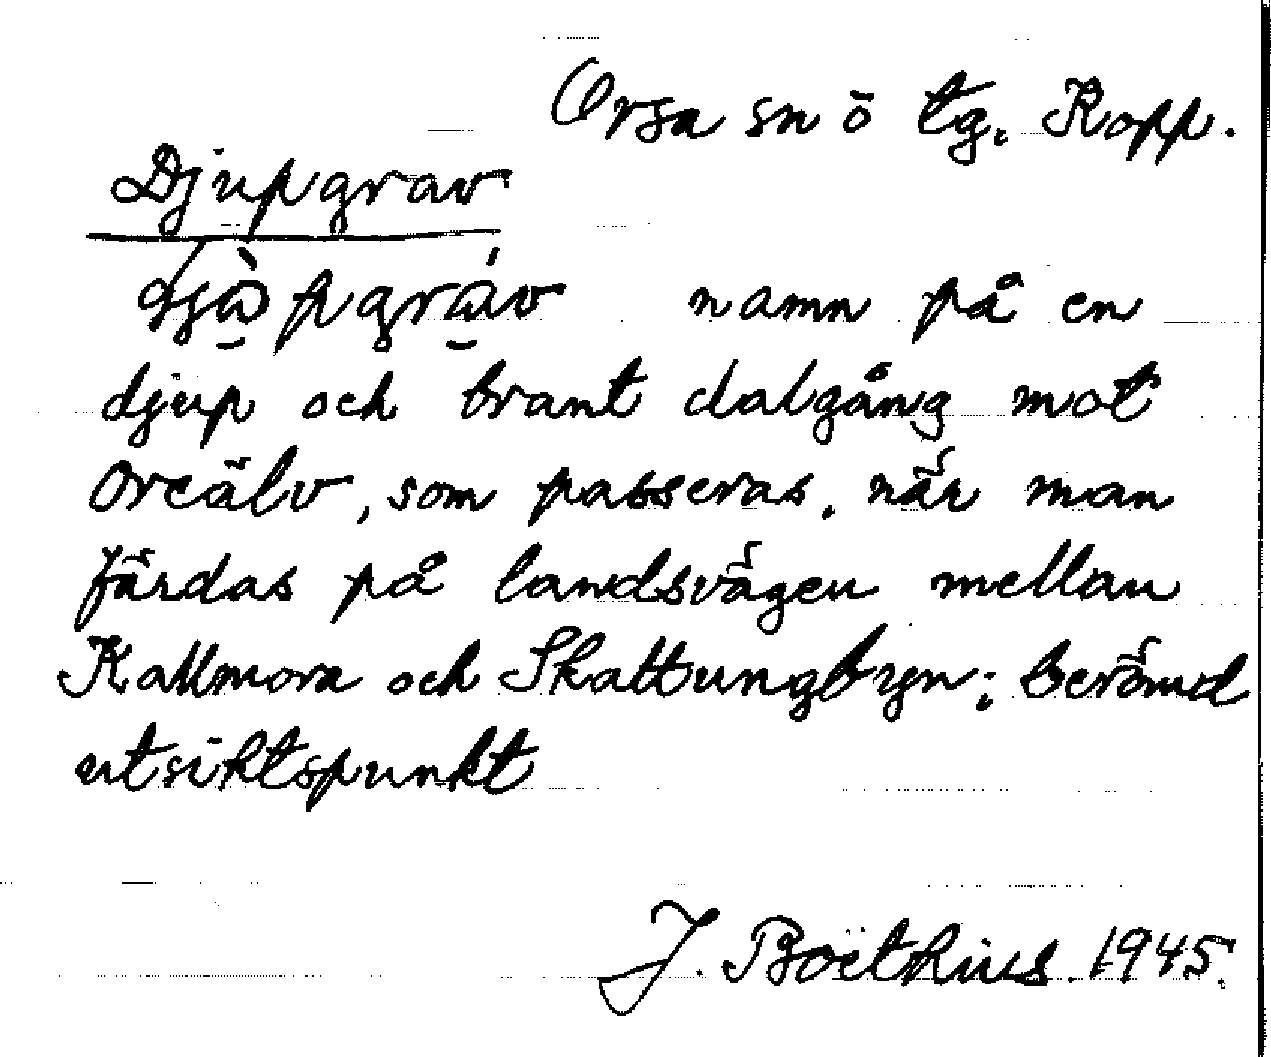 Orsa sn ö tg. Kopp.
Djupgrav
namn på en
djup och brant dalgång mot
Oreälv, som passeras, när man
färdas på landsvägen mellan
Kallmora och Skattungbyn; berömd
utsiktspunkt
J. Boëthius 1945.